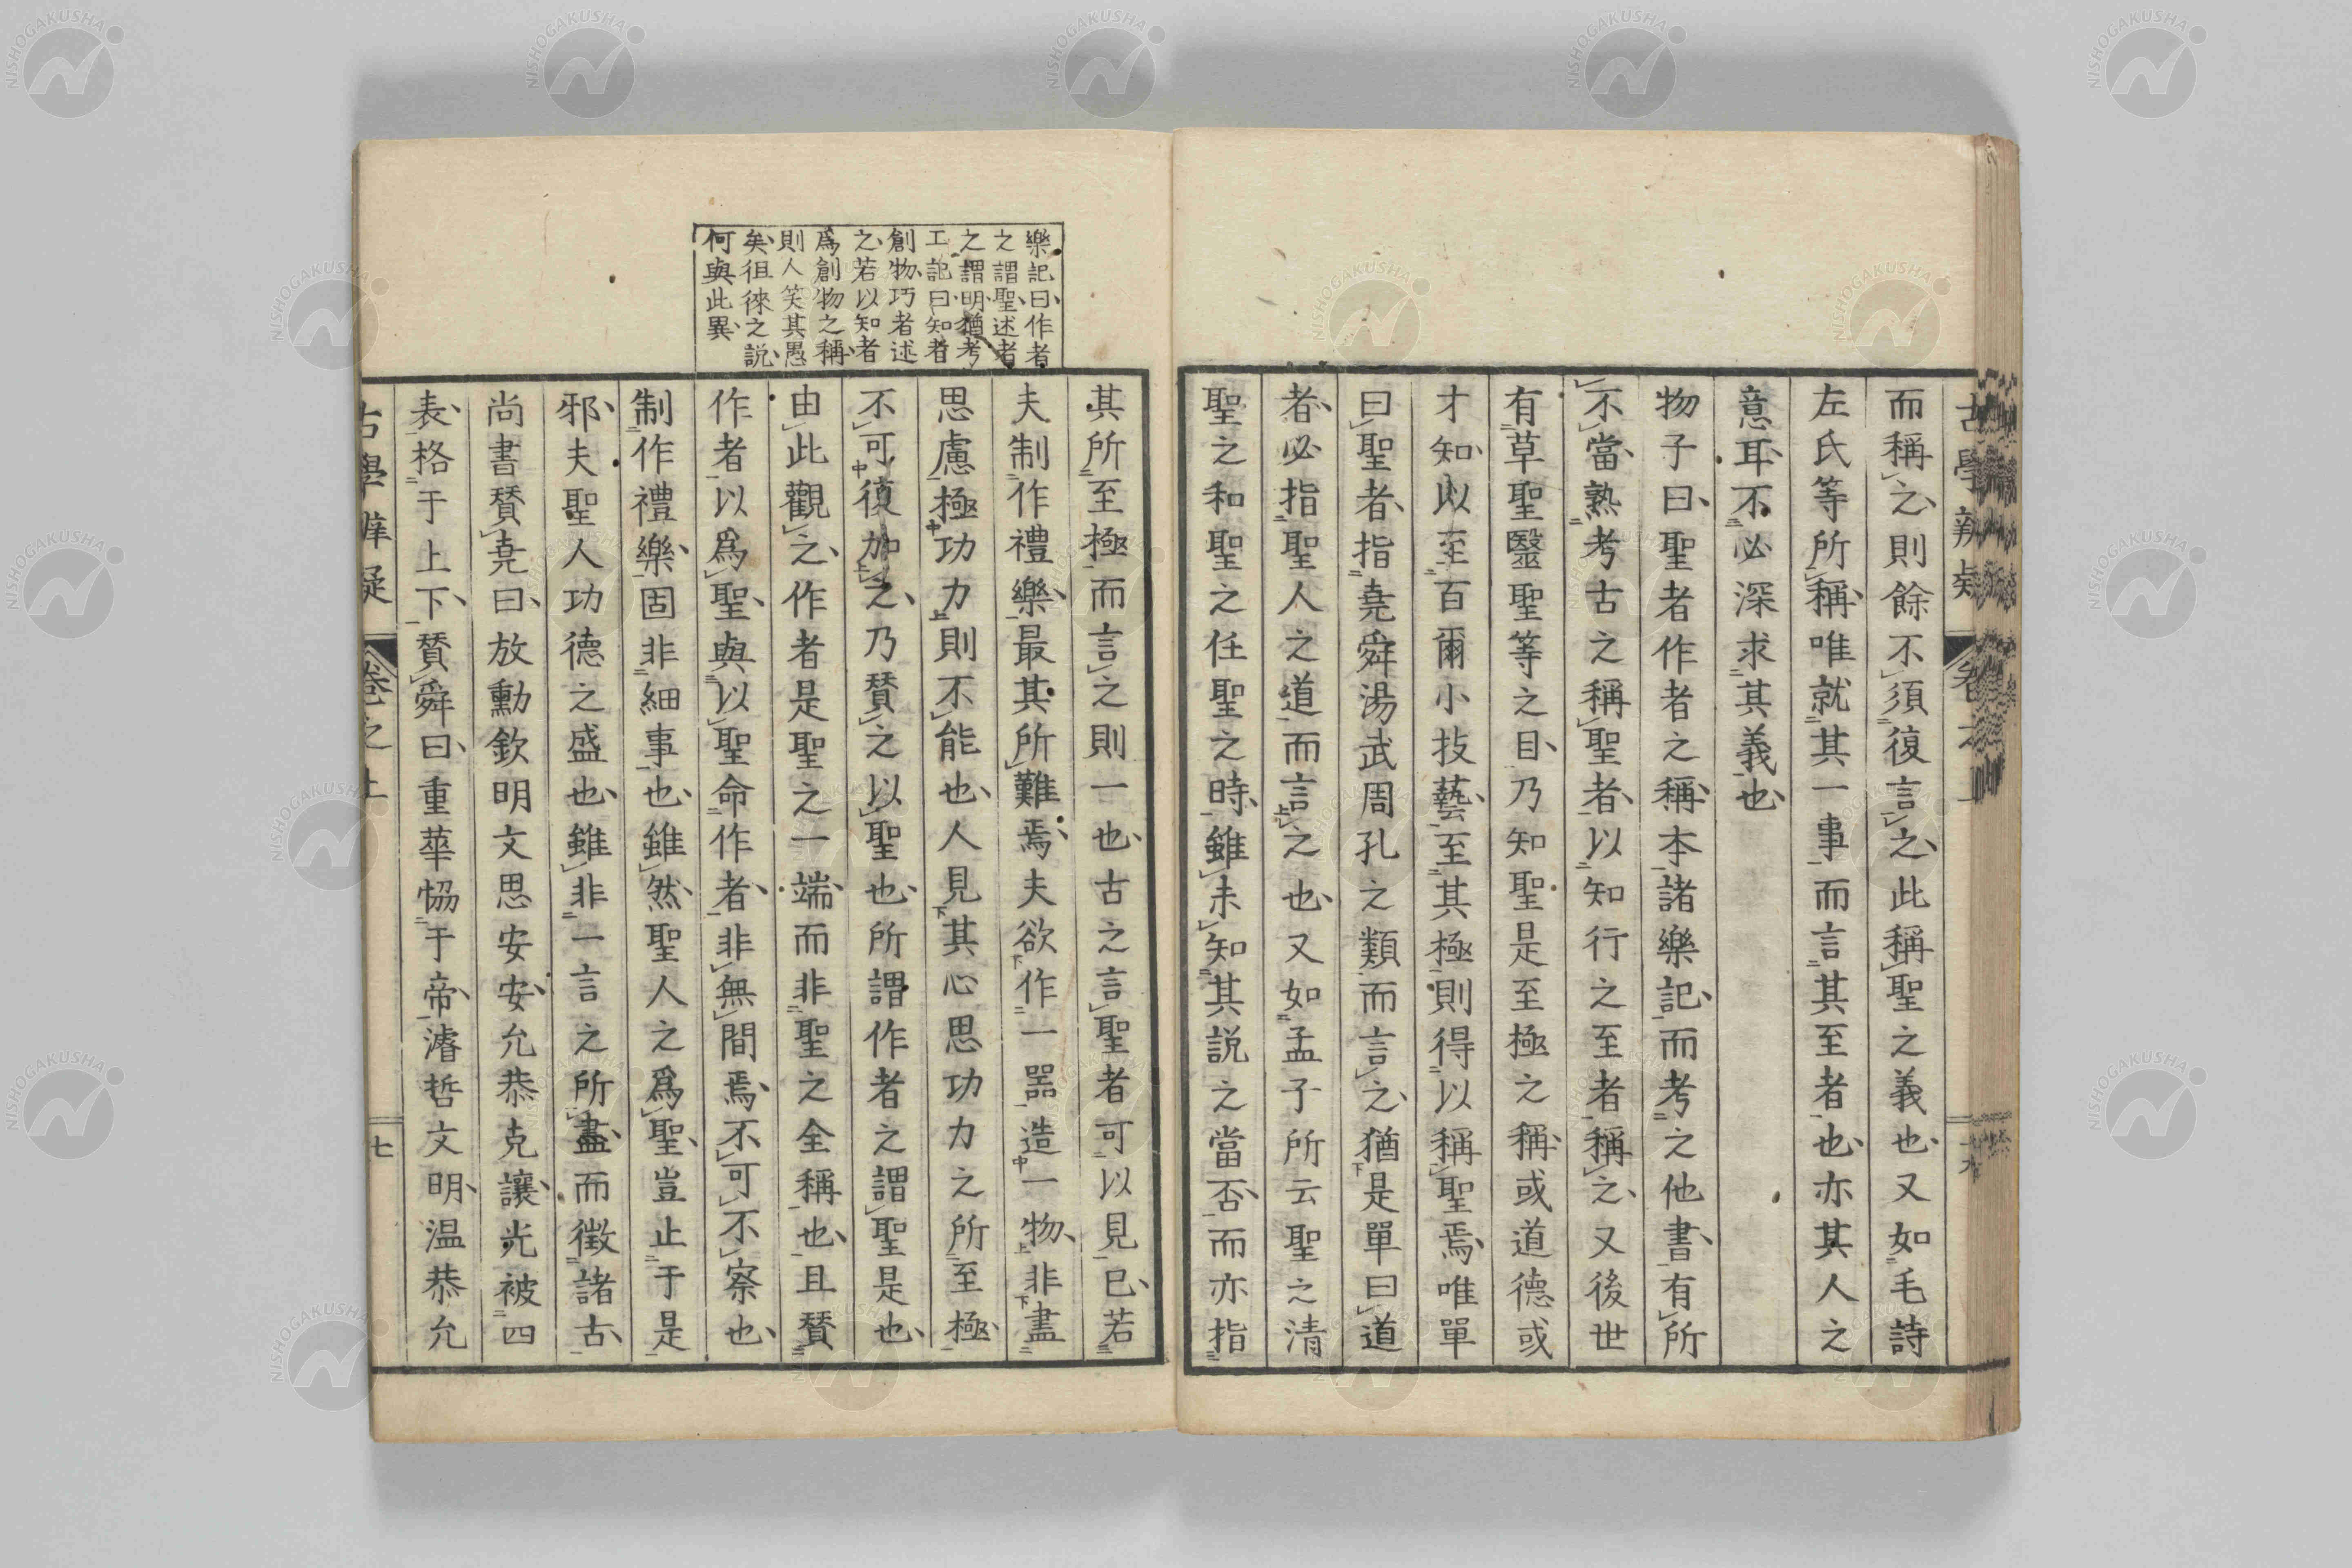 而稱之則餘不須復言之此稱聖之義也又如毛詩
左氏等所稱唯就其一事而言其至者也亦其人之
意耳不必深求其義也
物子曰聖者作者之稱本諸樂記而考之他書有所
不當熟考古之稱聖者以知行之至者稱之又後世
有草聖醫聖等之目乃知聖是至極之稱或道德或
才知以至百爾小技藝至其極則得以稱聖焉唯單
曰聖者指堯舜湯武周孔之類而言之猶是單曰道
者必指聖人之道而言之也又如孟子所云聖之清
聖之和聖之任聖之時雖未知其説之當否而亦指
樂記曰作者
之謂聖述者
之謂明猶考
工記曰知者
創物巧者述
之若以知者
爲創物之稱
則人笑其愚
矣徂徠之説
何與此異
其所至極而言之則一也古之言聖者可以見已若
夫制作禮樂最其所難焉夫欲作一器造一物非盡
思慮極功力則不能也人見其心思功力之所至極
不可復加之乃賛之以聖也所謂作者之謂聖是也
由此觀之作者是聖之一端而非聖之全稱也且賛
作者以爲聖與以聖命作者非無間焉不可不察也
制作禮樂固非細事也雖然聖人之爲聖豈止于是
邪夫聖人功德之盛也雖非一言之所盡而徵諸古
尚書賛堯曰放勳欽明文思安安允恭克讓光被四
表格于上下賛舜曰重華協于帝濬哲文明温恭允
古學辨疑
卷之上
七
NISHOGAKUSHA